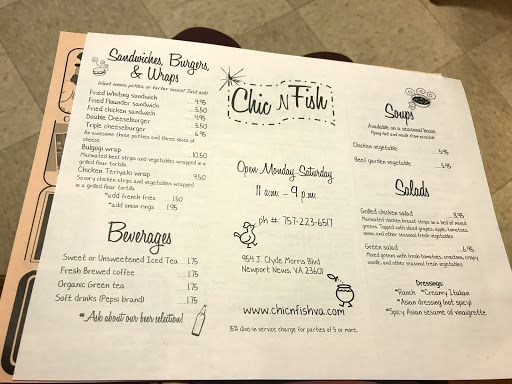 Sandwiches, Burgers,
& Wraps
Fried Whiting sandwich ... 4.95
Fried Flounder sandwich ... 5.50
Fried chicken sandwich ... 5.50
Double Cheeseburger ... 5.95
Triple cheeseburger ... 6.95
An awesome three patties and three slices of
cheese
Bulgogi wrap 10.50
Marinated beef strips and vegetables wrapped in
a grilled flour tortilla
Chicken Teriyaki wrap ... 9.50
Savory chicken strips and vegetables wrapped
in a grilled flour tortilla
*add french fries 1.50
*add onion rings 1.95
Beverages
Sweet or Unsweetened Iced Tea ... 1.75
Fresh Brewed coffee ... 1.75
Organic Green tea ... 1.75
Soft drinks (Pepsi brand) ... 1.75
*Ask about our beer selection!
Chic N Fish
Open Monday-Saturday
11 a.m. - 9 p.m.
ph # 757-223-6517
954 J. Clyde Morris Blvd
Newport News, VA 23601
www.chicnfishva.com
15% dine-in service charge for parties of 5 or more.
Soups
Available on a seasonal basis
Piping hot and made from scratch
Chicken vegetable
5.95
Beef garden vegetable
5.95
Salads
Grilled chicken salad 8.95
Marinated chicken breast strips in a bed of mixed
greens. Topped with sliced grapes, apple, tomatoes,
onion, and other seasonal fresh vegetables
Green salad 6.95
Mixed greens with fresh tomatoes, croutons, crispy
noodle, and other seasonal fresh vegetables.
Dressings:
*Ranch *Creamy Italian
*Asian dressing (not spicy)
*Spicy Asian sesame oil vinaigrette